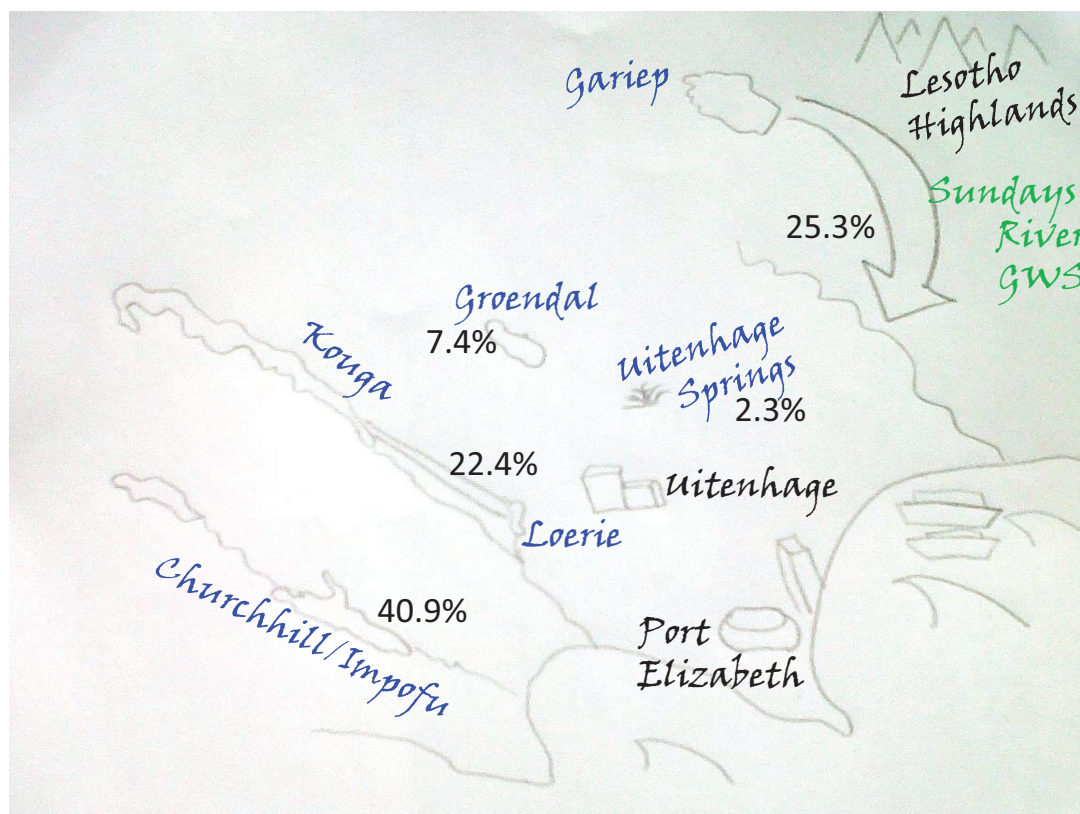 Gariep
Lesotho
Highlands
Sundays
River
GWS
25.3%
Groendal
7.4%
Kouga
Uitenhage
Springs
2.3%
22.4%
Uitenhage
Loerie
Churchhill/Impofu
40.9%
Port
Elizabeth